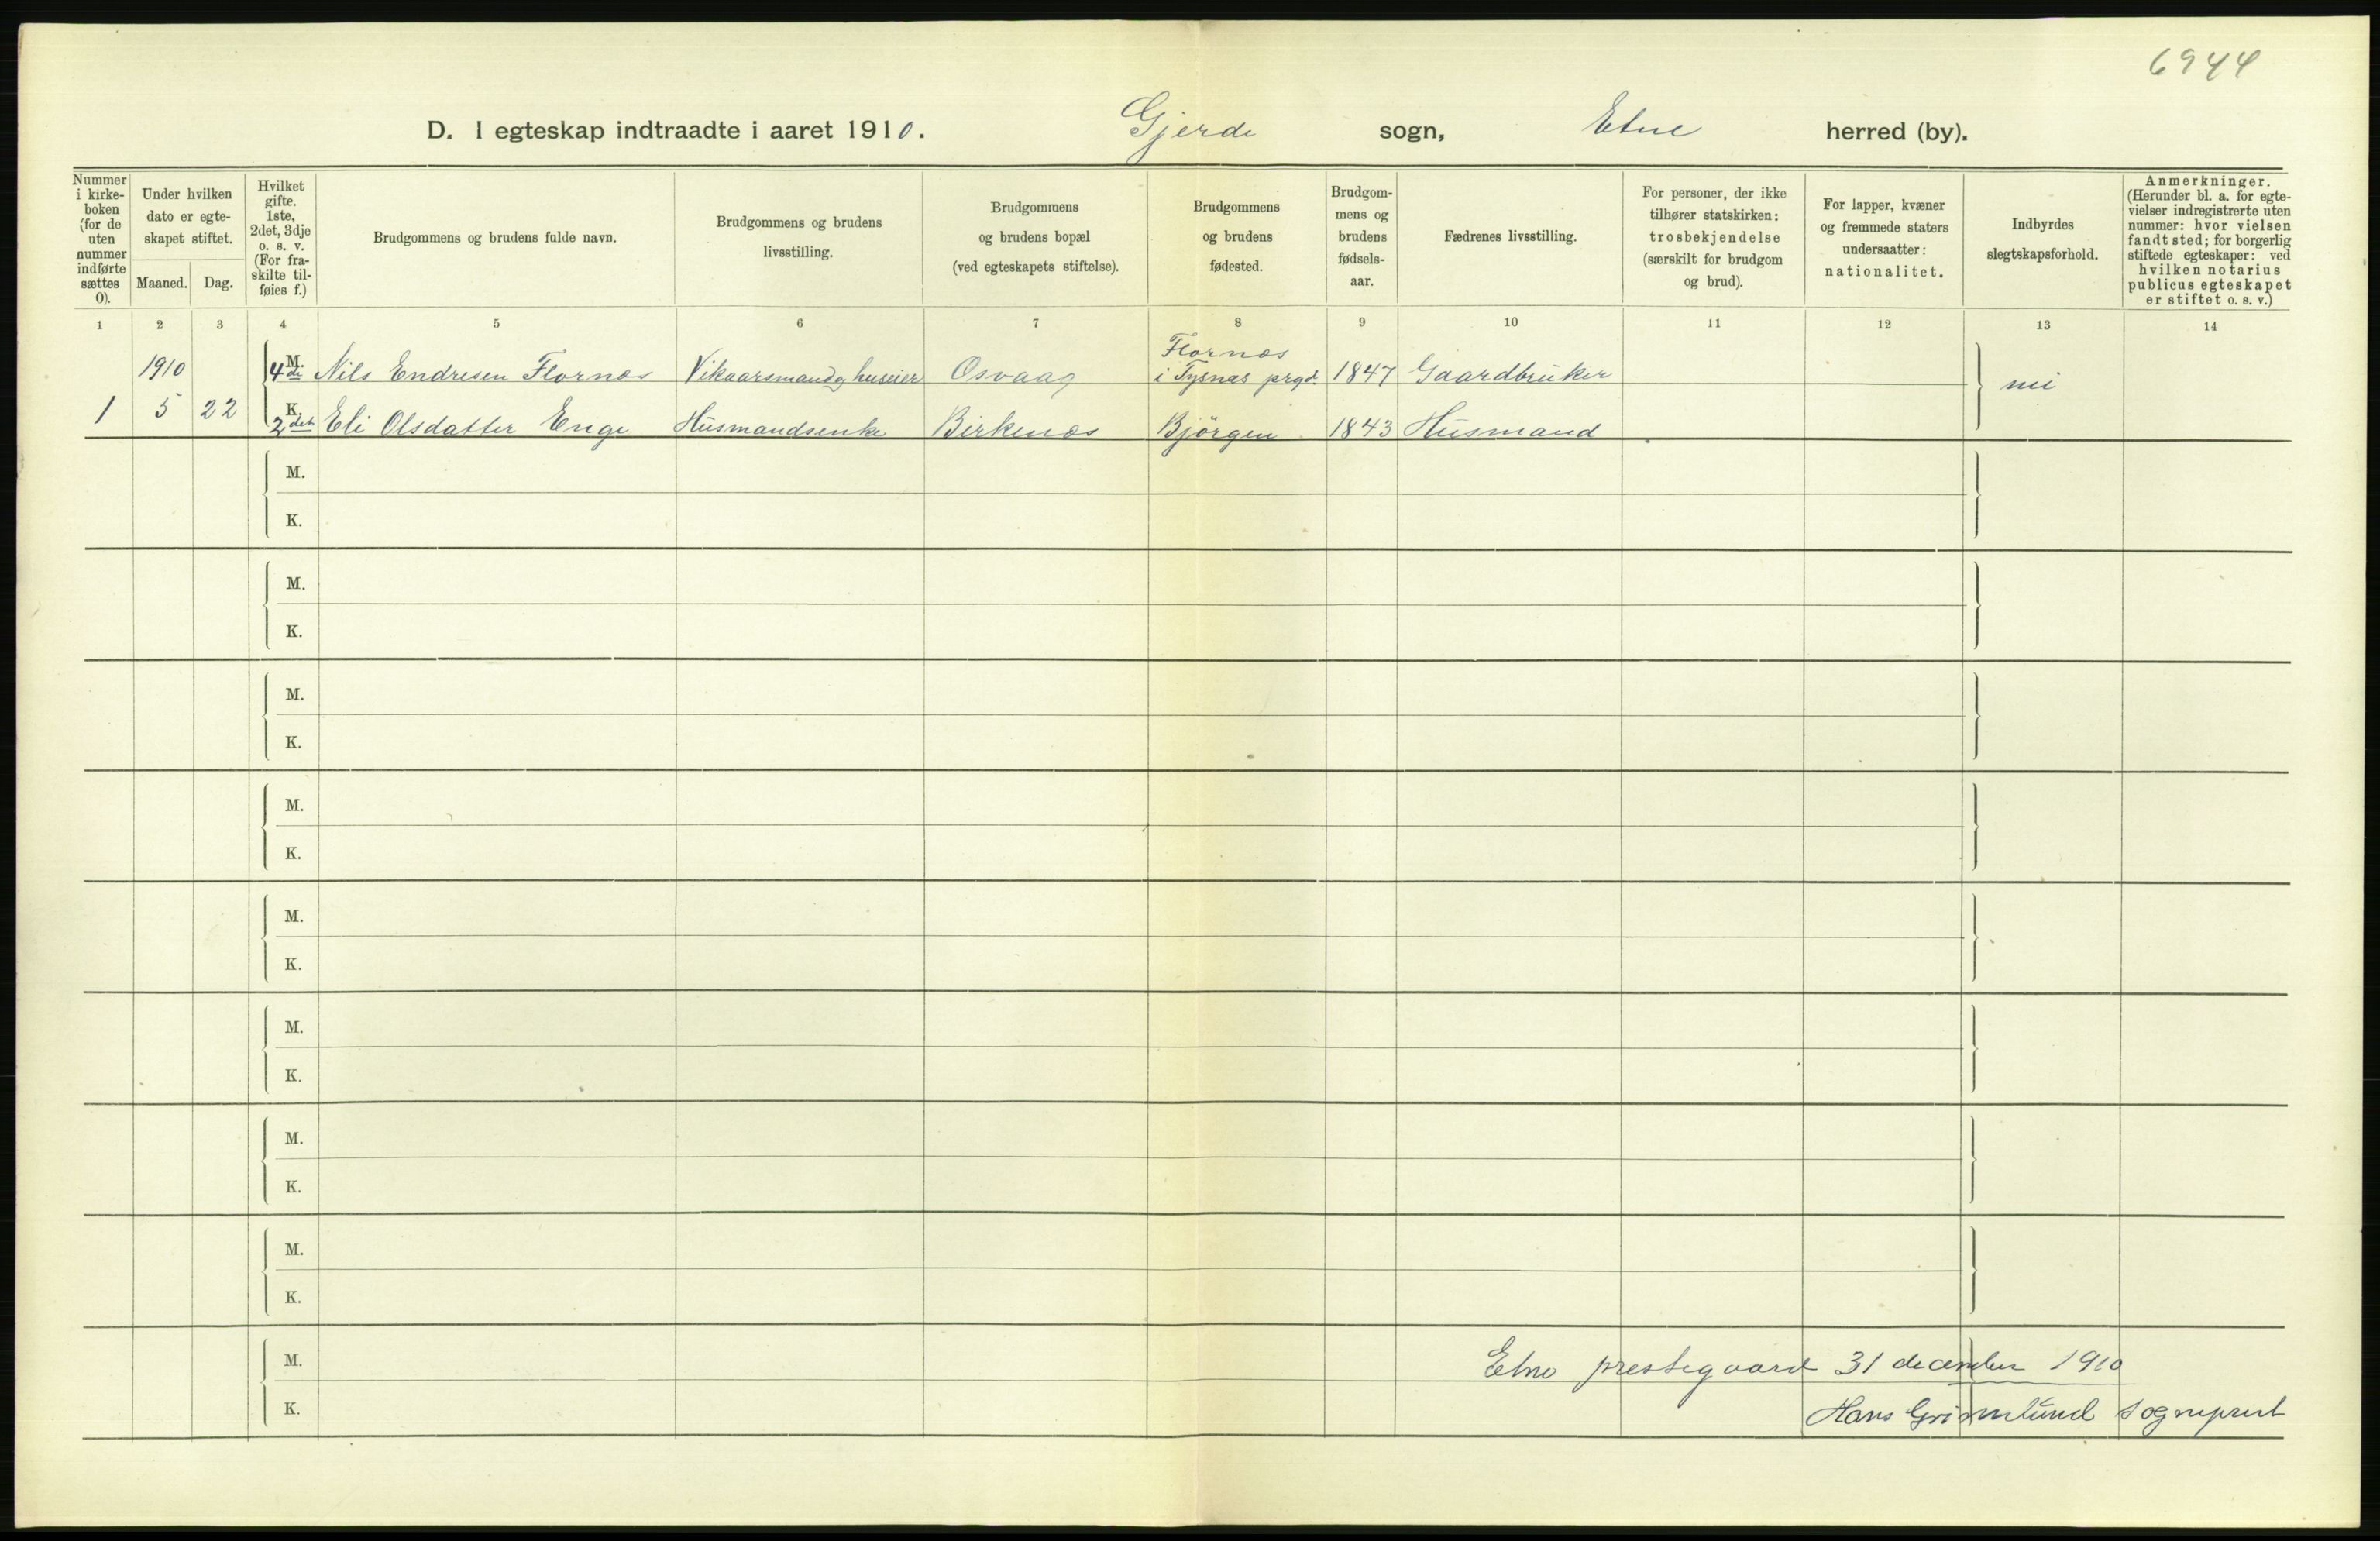 6944
D. I egteskap indtraadte i aaret 1910. Gjerde sogn, Etne herred (by).
Nummer i kirkeboken (for de uten nummer indførte sættes 0).
Under hvilken dato er egteskapet stiftet.
Maaned. Dag.
Hvilket gifte. 1ste, 2det, 3dje o. s. v. (For fraskilte tilføies f.)
Brudgommens og brudens fulde navn.
Brudgommens og brudens livsstilling.
Brudgommens og brudens bopæl (ved egteskapets stiftelse).
Brudgommens og brudens fødested.
Brudgommens og brudens fødselsaar.
Fædrenes livsstilling.
For personer, der ikke tilhører statskirken: trosbekjendelse (særskilt for brudgom og brud).
For lapper, kvæner og fremmede staters undersaatter: nationalitet.
Indbyrdes slegtskapsforhold.
Anmerkninger. (Herunder bl. a. for egtevielser indregistrerte uten nummer: hvor vielsen fandt sted; for borgerlig stiftede egteskaper: ved hvilken notarius publicus egteskapet er stiftet o. s. v.)
1 2 3 4 5 6 7 8 9 10 11 12 13 14
1910 M. 4de Nils Endresen Flornæs Vikaarsmand og huseier Osvaag Flornæs i Tysnæs prgd. 1847 Gaardbruker nei
1 5 22 K. 2det Eli Olsdatter Enge Husmandsenke Birkenæs Bjørgen 1843 Husmand
M.
K.
M.
K.
M.
K.
M.
K.
M.
K.
M.
K.
M.
K.
M.
K.
M. Etne prestegaard 31 december 1910
K. Hans Grimelund sogneprest